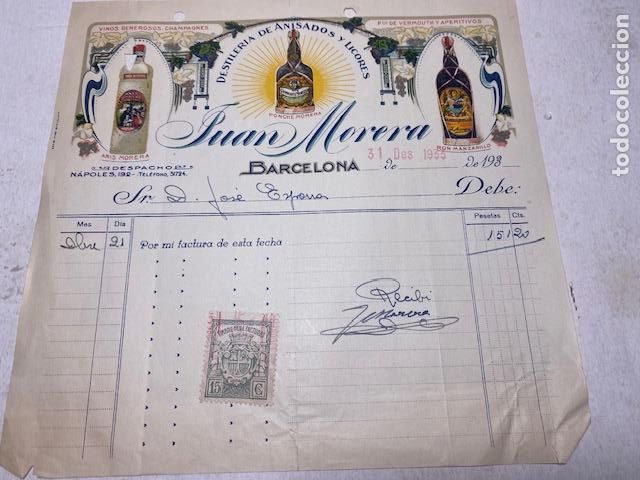 VINOS GENEROSOS, CHAMPAGNES
DESTILERIA DE ANISADOS Y LICORES
Fca DE VERMOUTH Y APERITIVOS
ANIS MORERA
PONCHE MORERA
RON MANZANILLO
Juan Morera
DESPACHO:
NÁPOLES, 192 - TELÉFONO, 51724.
BARCELONA
31 Des 1935
de de 193
Sr. D. José Debe:
Mes Día Pesetas Cts.
21 Por mi factura de esta fecha 151 20
Recibí
J. Morera
15 C
todocoleccion